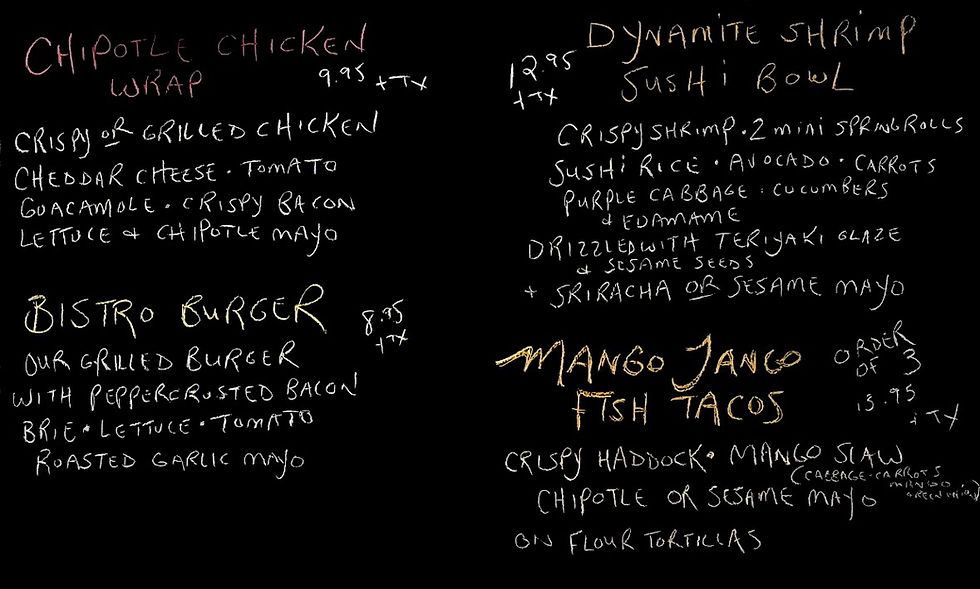 CHIPOTLE CHICKEN
WRAP
9.95 + TX
CRISPY OR GRILLED CHICKEN
CHEDDAR CHEESE · TOMATO
GUACAMOLE · CRISPY BACON
LETTUCE & CHIPOTLE MAYO
BISTRO BURGER
8.95
+ TX
OUR GRILLED BURGER
WITH PEPPERCRUSTED BACON
BRIE · LETTUCE · TOMATO
ROASTED GARLIC MAYO
DYNAMITE SHRIMP
SUSHI BOWL
12.95
+ TX
CRISPY SHRIMP · 2 MINI SPRINGROLLS
SUSHI RICE · AVOCADO · CARROTS
PURPLE CABBAGE · CUCUMBERS
& EDAMAME
DRIZZLED WITH TERIYAKI GLAZE
& SESAME SEEDS
+ SRIRACHA OR SESAME MAYO
MANGO JANGO
FISH TACOS
ORDER
OF 3
13.95
+ TX
CRISPY HADDOCK · MANGO SLAW
(CABBAGE · CARROTS
MANGO
GREEN ONION)
CHIPOTLE OR SESAME MAYO
ON FLOUR TORTILLAS